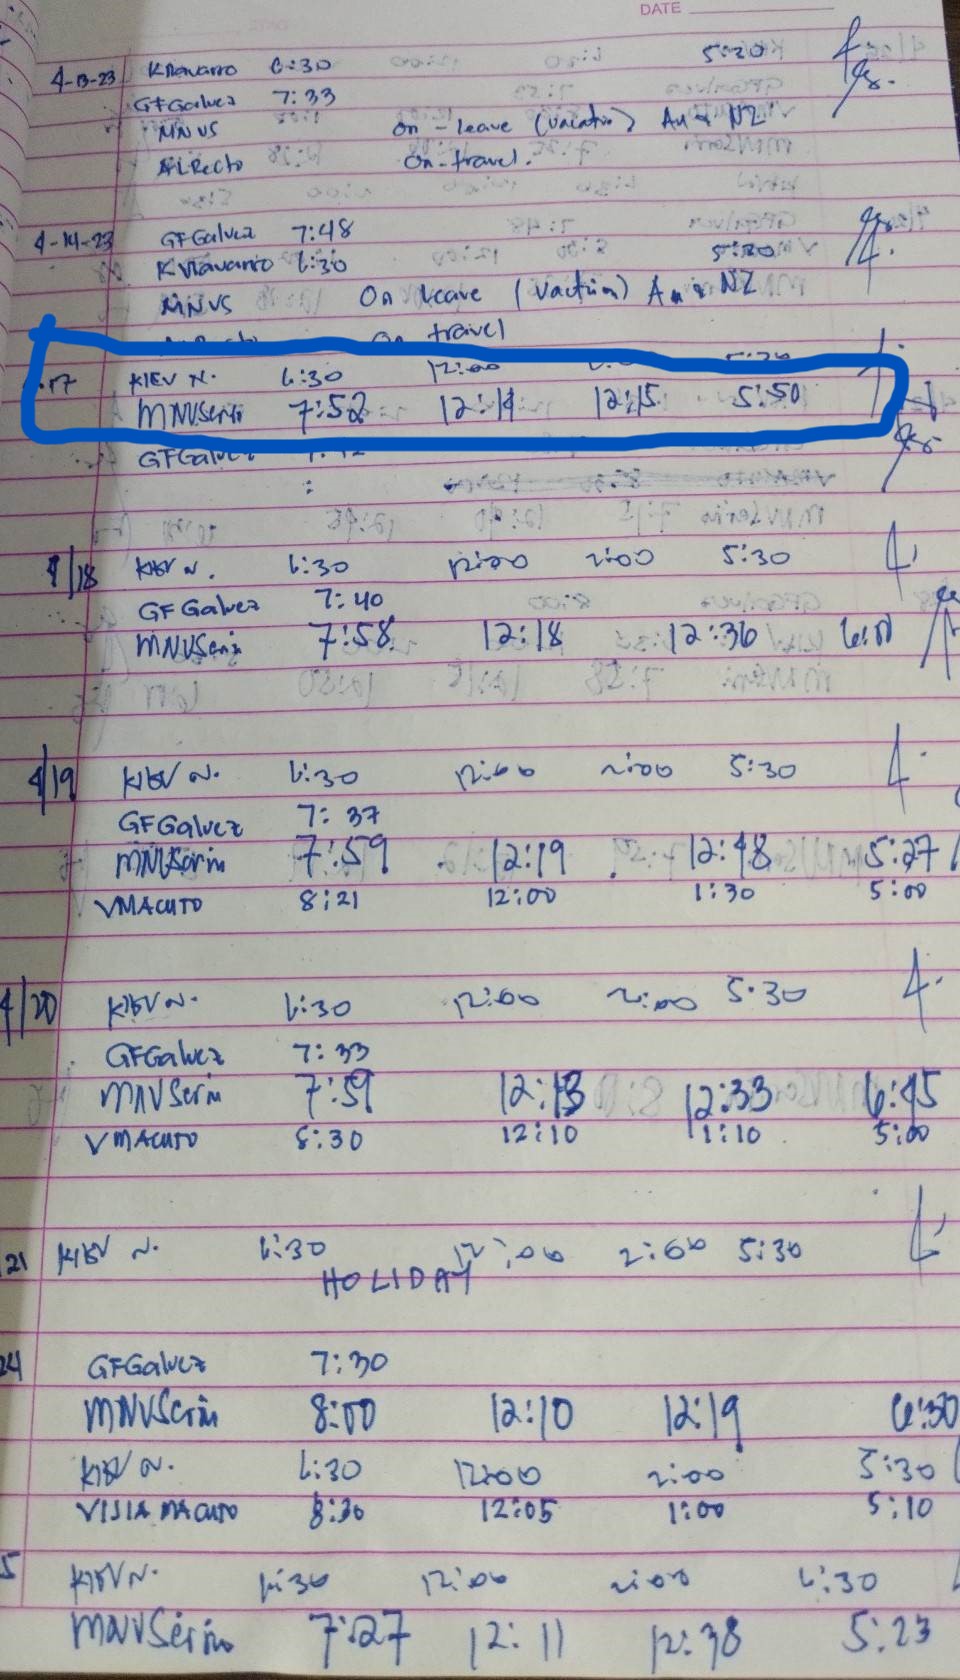 DATE
4-13-23 KNavarro 6:30 5:30
GFGalvez 7:33
MNVS On-leave (Vacation) Au & NZ
ALRecto On-travel.
4-14-23 GFGalvez 7:48
KNavarro 6:30 5:30
MNVS On leave (Vaction) Au & NZ
On travel
17 KIEV N. 6:30 12:00 5:30
MNVSerin 7:52 12:14 12:15 5:50
GFGalvez
:
4/18 KIEV N. 6:30 12:00 2:00 5:30
GFGalvez 7:40
MNVSerin 7:58 12:18 12:36
4/19 KIEV N. 6:30 12:00 2:00 5:30
GFGalvez 7:37
MNVSerin 7:59 12:19 12:48 5:27
VMACUTO 8:21 12:00 1:30 5:00
4/20 KIEV N. 6:30 12:00 2:00 5:30
GFGalvez 7:33
MNVSerin 7:59 12:13 12:33 6:45
VMACUTO 8:30 12:10 1:10 5:00
21 KIEV N. 6:30 12:00 2:00 5:30
HOLIDAY
24 GFGalvez 7:30
MNVSerin 8:00 12:10 12:19 6:30
KIEV N. 6:30 12:00 2:00 5:30
VIJIA MACUTO 8:30 12:05 1:00 5:10
5 KIEV N. 6:30 12:00 2:00 6:30
MNVSerin 7:27 12:11 12:38 5:23